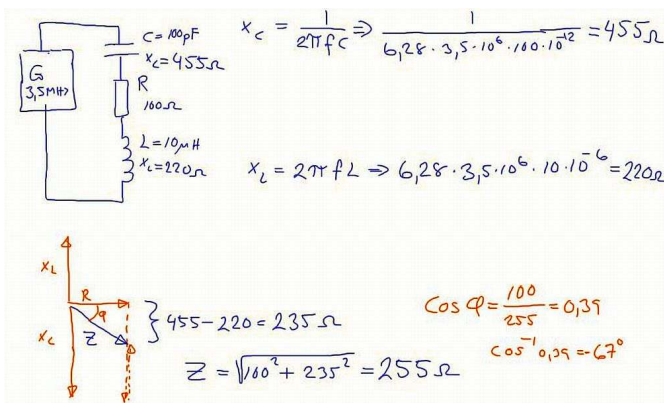 C = 100pF
Xc = 455Ω
G
3,5MHz
R
100Ω
L = 10μH
XL = 220Ω
Xc = 1/(2πfC) ⇒ 1/(6,28 · 3,5 · 10⁶ · 100 · 10⁻¹²) = 455Ω
XL = 2πfL ⇒ 6,28 · 3,5 · 10⁶ · 10 · 10⁻⁶ = 220Ω
XL
R
φ
Xc
Z
} 455 - 220 = 235Ω
Z = √(100² + 235²) = 255Ω
Cos φ = 100/255 = 0,39
cos⁻¹ 0,39 = -67°